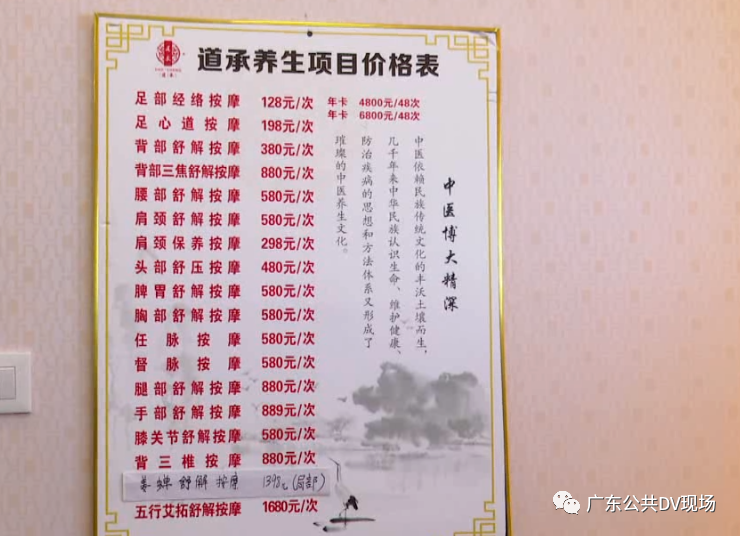 道承养生项目价格表
足部经络按摩 128元/次 年卡 4800元/48次
足心道按摩 198元/次 年卡 6800元/48次
背部舒解按摩 380元/次
背部三焦舒解按摩 880元/次
腰部舒解按摩 580元/次
肩颈舒解按摩 580元/次
肩颈保养按摩 298元/次
头部舒压按摩 480元/次
脾胃舒解按摩 580元/次
胸部舒解按摩 580元/次
任脉按摩 580元/次
督脉按摩 580元/次
腿部舒解按摩 880元/次
手部舒解按摩 889元/次
膝关节舒解按摩 580元/次
背三椎按摩 880元/次
舒解按摩 1398元(局部)
五行艾拓舒解按摩 1680元/次
中医博大精深
中医依赖民族传统文化的丰沃土壤而生,
几千年来中华民族认识生命、维护健康、
防治疾病的思想和方法体系又形成了
璀璨的中医养生文化。
广东公共DV现场